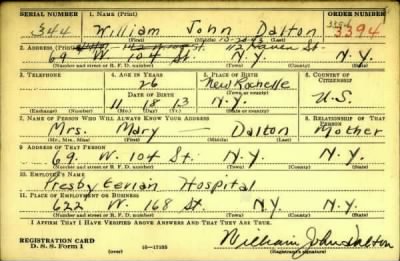 SERIAL NUMBER 1. NAME (Print) ORDER NUMBER
344 William John Dalton 3394
(First) (Middle) (Last)
2. ADDRESS (Print) 112 Haven St.
69 W. 104 St. N.Y. N.Y.
(Number and street or R. F. D. number) (Town) (County) (State)
3. TELEPHONE 4. AGE IN YEARS 5. PLACE OF BIRTH 6. COUNTRY OF CITIZENSHIP
26 New Rochelle
DATE OF BIRTH
11 18 13 N.Y. U.S.
(Exchange) (Number) (Mo.) (Day) (Yr.) (State or country)
7. NAME OF PERSON WHO WILL ALWAYS KNOW YOUR ADDRESS 8. RELATIONSHIP OF THAT PERSON
Mrs. Mary — Dalton Mother
(Mr., Mrs., Miss) (First) (Middle) (Last)
9. ADDRESS OF THAT PERSON
69 W. 104 St. N.Y. N.Y.
(Number and street or R. F. D. number) (Town) (County) (State)
10. EMPLOYER'S NAME
Presbyterian Hospital
11. PLACE OF EMPLOYMENT OR BUSINESS
622 W. 168 St. NY N.Y.
(Number and street or R. F. D. number) (Town) (County) (State)
I AFFIRM THAT I HAVE VERIFIED ABOVE ANSWERS AND THAT THEY ARE TRUE.
REGISTRATION CARD
D. S. S. Form 1 (over) 16—17105 William John Dalton
(Registrant's signature)